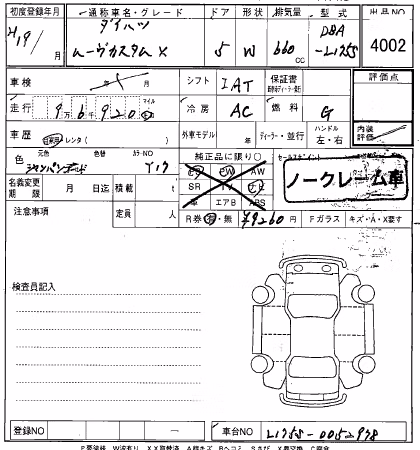 初度登録年月 通称車名・グレード ドア 形状 排気量 型式 出品NO
H19/ 月 ダイハツ ムーヴカスタムX 5 W 660 cc DBA -L175S 4002
車検 年 月 シフト IAT 保証書 評価点
走行 9万6920 マイル km 冷房 AC 燃料 G 内装評価
車歴 自家用 レンタ( ) 外車モデル 年 ディーラー・並行 ハンドル 左・右
色 元色 シャンパンゴールド 色替 カラーNO Y17 純正品に限り○ セールスポイント
PS PW AW
SR TV ナビ
革 エアB ABS
ノークレーム車
名義変更期限 月 日迄 積載 t
注意事項 定員 人 R券 有・無 ¥9260円 Fガラス キズ・A・X要す
検査員記入
登録NO 車台NO L175S-0052978